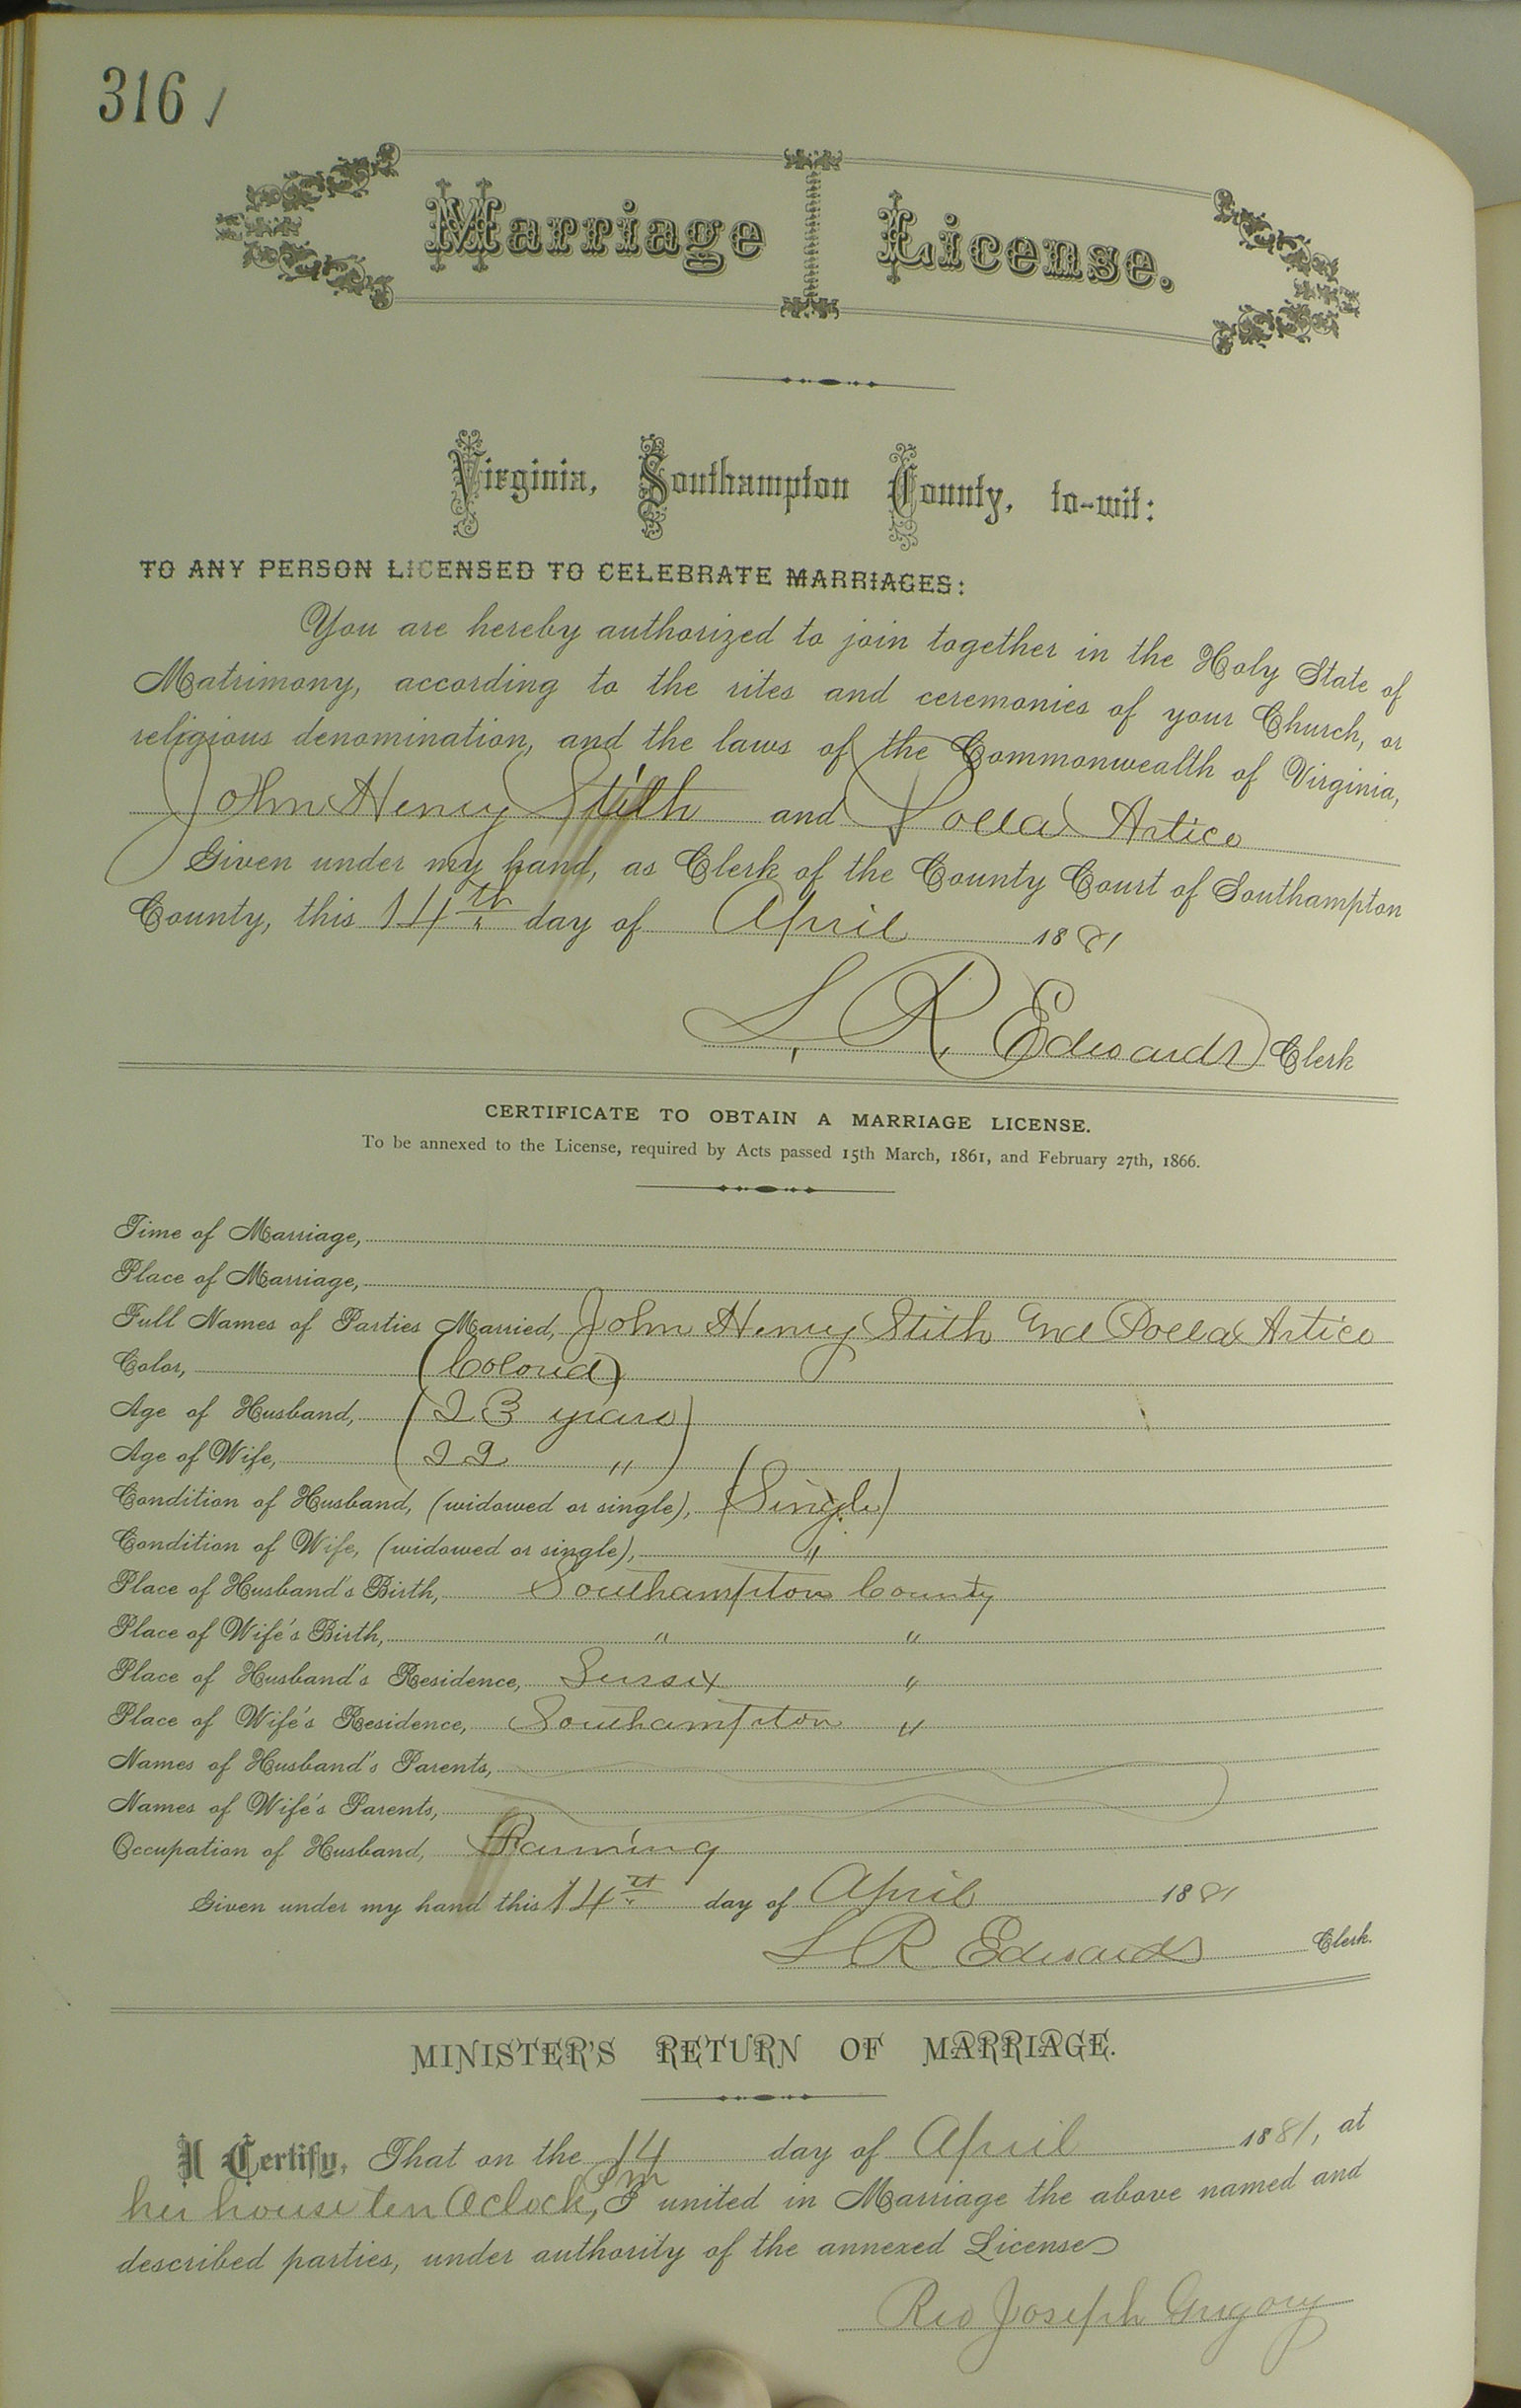 316
Marriage License.
Virginia, Southampton County, to-wit:
TO ANY PERSON LICENSED TO CELEBRATE MARRIAGES:
You are hereby authorized to join together in the Holy State of
Matrimony, according to the rites and ceremonies of your Church, or
religious denomination, and the laws of the Commonwealth of Virginia,
John Henry Stith and Polla Artico
Given under my hand, as Clerk of the County Court of Southampton
County, this 14th day of April 1881
L. R. Edwards Clerk
CERTIFICATE TO OBTAIN A MARRIAGE LICENSE.
To be annexed to the License, required by Acts passed 15th March, 1861, and February 27th, 1866.
Time of Marriage,
Place of Marriage,
Full Names of Parties Married, John Henry Stith and Polla Artico
Color, (Colored)
Age of Husband, (23 years)
Age of Wife, (22 ")
Condition of Husband, (widowed or single), (Single)
Condition of Wife, (widowed or single), "
Place of Husband's Birth, Southampton County
Place of Wife's Birth, " "
Place of Husband's Residence, Sussex "
Place of Wife's Residence, Southampton "
Names of Husband's Parents,
Names of Wife's Parents,
Occupation of Husband, Farming
Given under my hand this 14th day of April 1881
L R Edwards Clerk.
MINISTER'S RETURN OF MARRIAGE.
I Certify, That on the 14 day of April 1881, at
her house ten Oclock, Pm I united in Marriage the above named and
described parties, under authority of the annexed License
Rev Joseph Gregory